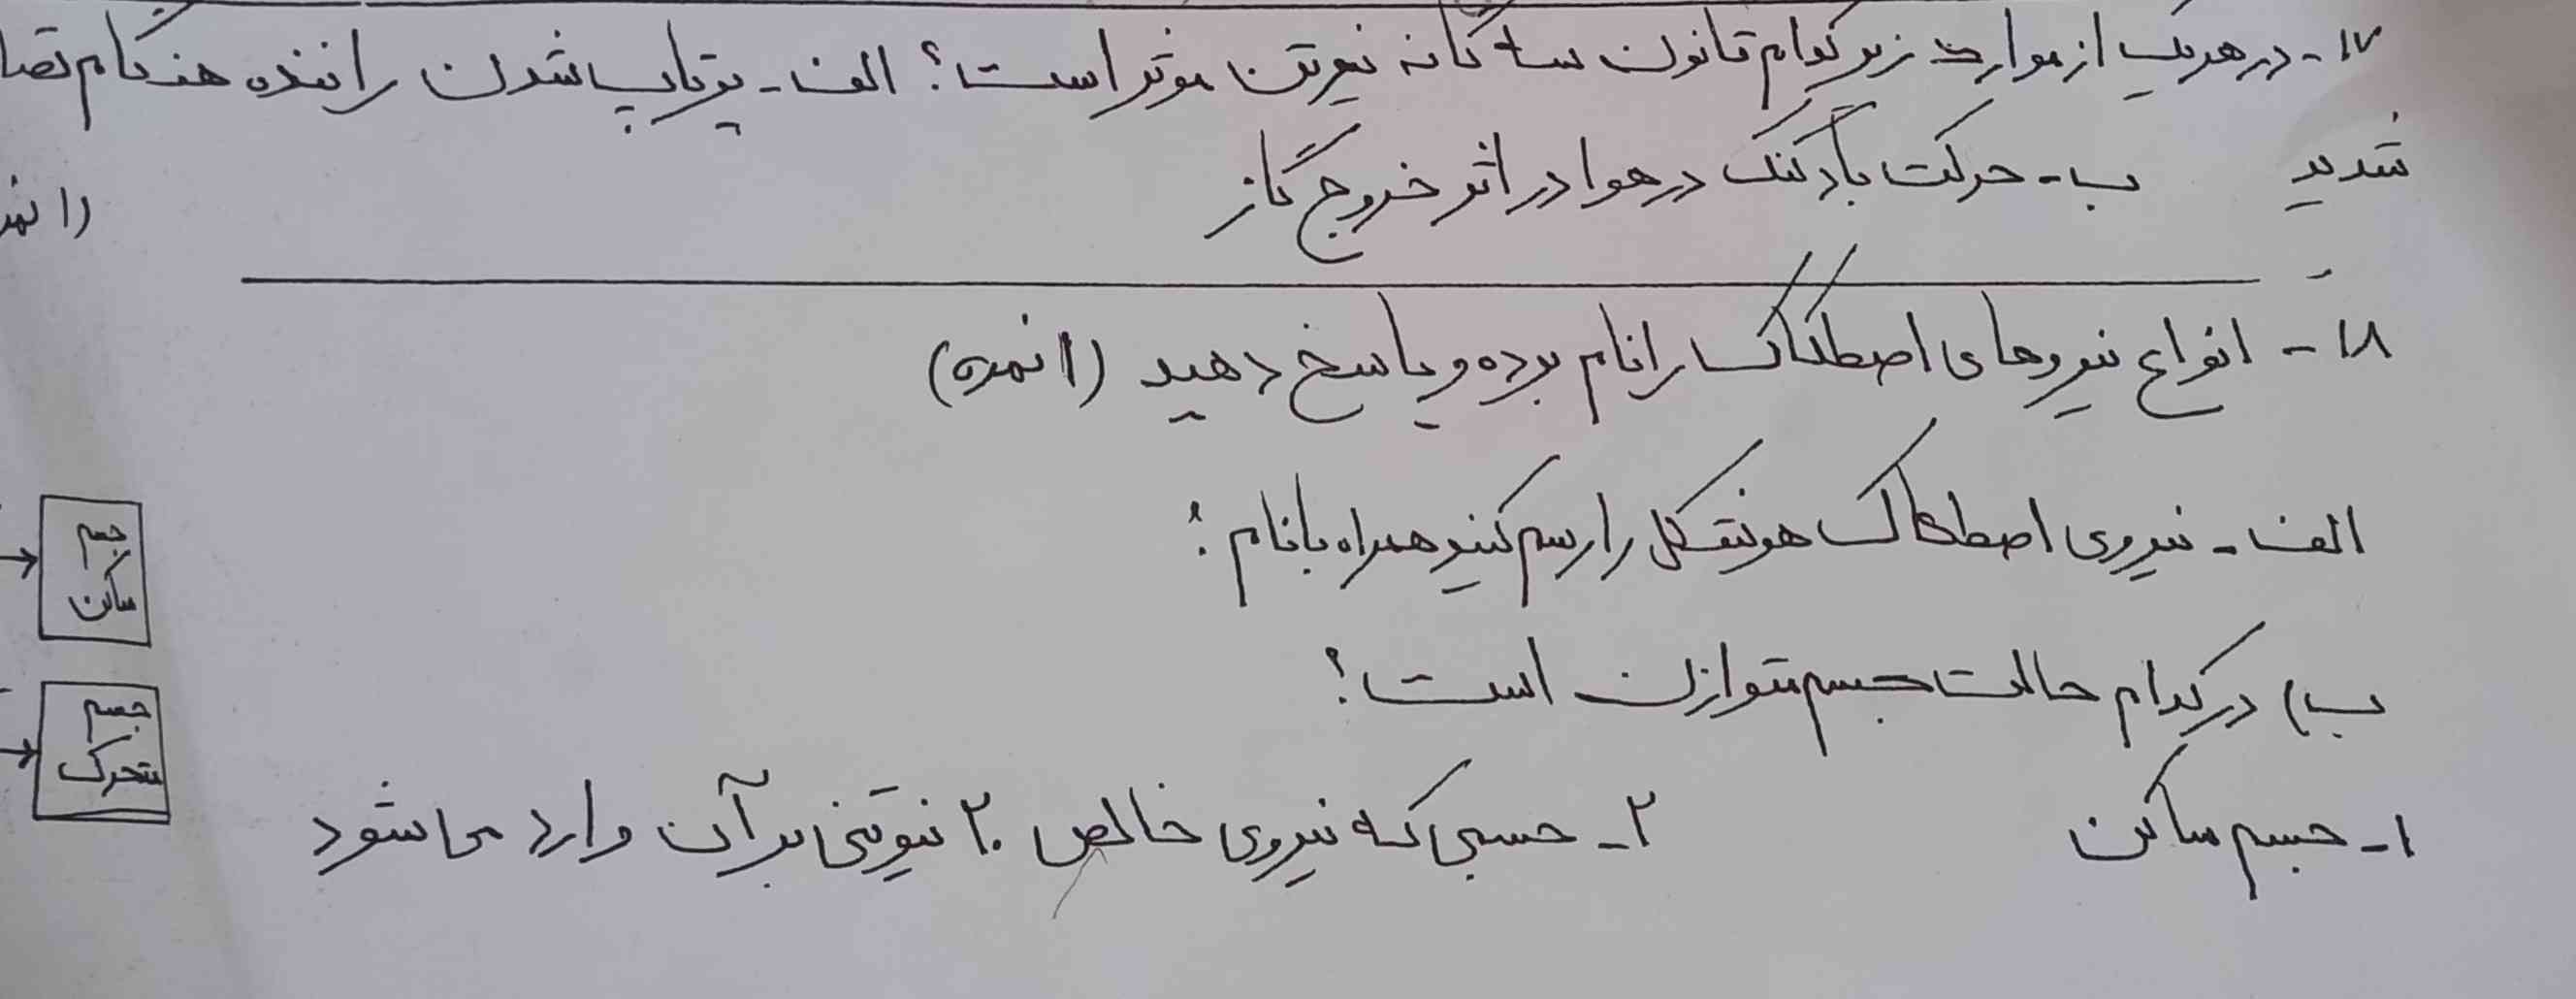 ۱۷- در هر یک از موارد زیر کدام قانون سه گانه نیوتن موثر است؟ الف- پرتاب شدن راننده هنگام تصا
شدید ب- حرکت بادکنک در هوا در اثر خروج گاز
(۱ نمر
۱۸- انواع نیروهای اصطکاک را نام برده و پاسخ دهید (۱ نمره)
الف- نیروی اصطکاک هر شکل را رسم کنید همراه با نام:
جسم
ساکن
ب) در کدام حالت جسم متوازن است؟
جسم
متحرک
۱- جسم ساکن ۲- جسمی که نیروی خالص ۲۰ نیوتنی بر آن وارد می شود